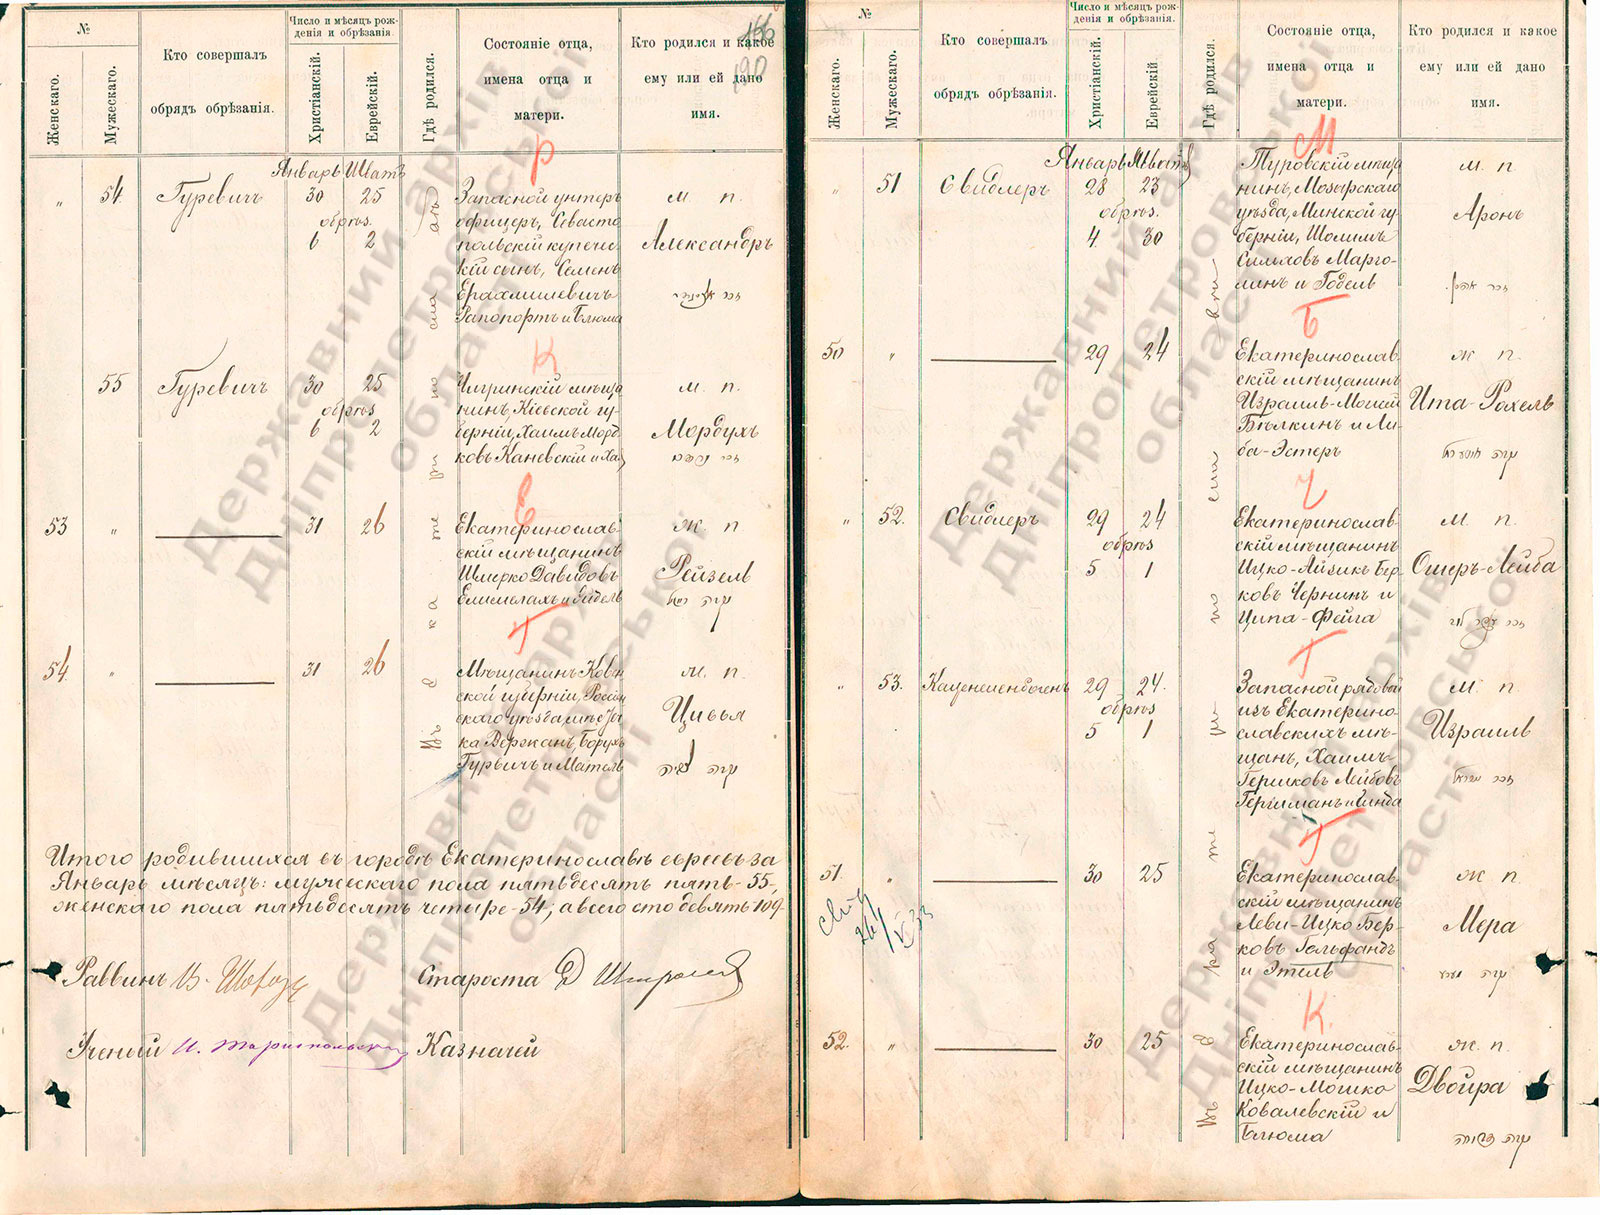 №
Женскаго.
Мужескаго.
Кто совершалъ
обрядъ обрѣзанія.
Число и мѣсяцъ рож-
денія и обрѣзанія.
Христіанскій.
Еврейскій.
Гдѣ родился.
Состояніе отца,
имена отца и
матери.
Кто родился и какое
ему или ей дано
имя.
166
190
Январь Шватъ
Р
„ 54. Гуревичъ 30 25
обрѣз.
6 2
Запасной унтеръ
офицеръ, Севасто
польскій купече
кій сынъ, Семенъ
Ерахмилевичъ
Рапопортъ и Блюма
м. п.
Александръ
К
55 Гуревичъ 30 25
обрѣз
6 2
Чигринскій мѣща
нинъ, Кіевской гу-
берніи, Хаимъ Морд
ковъ Каневскій и Ха
м. п.
Мордухъ
Е
53 „ 31 26
Екатеринослав-
скій мѣщанинъ
Шмерко Давидовъ
Елимелахъ и Эйдель
ж п
Рейзель
Г
54. „ 31 26
Мѣщанинъ Ковен
ской губерніи, Россіен
скаго уѣзда,
Вержанъ, Борухъ
Гурвичъ и Матель
ж. п.
Цивья
Въ Ека те ри но сла вѣ
Итого родившихся въ городѣ Екатеринославѣ евреевъ за
Январь мѣсяцъ: мужескаго пола пятьдесятъ пять-55-,
женскаго пола пятьдесятъ четыре-54; а всего сто девять 109
Раввинъ
Староста
Ученый
Казначей
№
Женскаго.
Мужескаго.
Кто совершалъ
обрядъ обрѣзанія.
Число и мѣсяцъ рож-
денія и обрѣзанія.
Христіанскій.
Еврейскій.
Гдѣ родился.
Состояніе отца,
имена отца и
матери.
Кто родился и какое
ему или ей дано
имя.
Январь Шватъ
М
„ 51 Свидлеръ 28 23
обрѣз.
4. 30
Туровскій мѣща
нинъ, Мозырскаго
уѣзда, Минской гу
берніи, Шолимъ
Сильховъ Марго-
линъ и Годель
м. п
Аронъ
Б
50 „ 29 24
Екатеринослав-
скій мѣщанинъ
Израиль-Мойсей
Бѣлкинъ и Ли-
ба-Эстеръ
ж п.
Ита-Рохель
Ч
„ 52. Свидлеръ 29 24
обрѣз
5 1
Екатеринослав-
скій мѣщанинъ
Ицко-Айзикъ Бер-
ковъ Чернинъ и
Ципа-Фейга
м. п
Ошеръ-Лейба
Г
„ 53. Каценеленбогенъ 29 24.
обрѣз
5 1
Запасной рядовой
изъ Екатерино-
славскихъ мѣ-
щанъ, Хаимъ-
Гершковъ Лейбовъ
Гершманъ и Гинда
м. п
Израиль
Г
51. „ 30 25
Екатеринослав-
скій мѣщанинъ
Леви-Ицко Бер-
ковъ Гельфандъ
и Этель
ж п.
Мера
К.
52. „ 30 25
Екатеринослав-
скій мѣщанинъ
Ицко-Мошко
Ковалевскій и
Блюма
ж. п.
Двойра
Въ Ека те ри но сла вѣ
Державний архів
Дніпропетровської
області